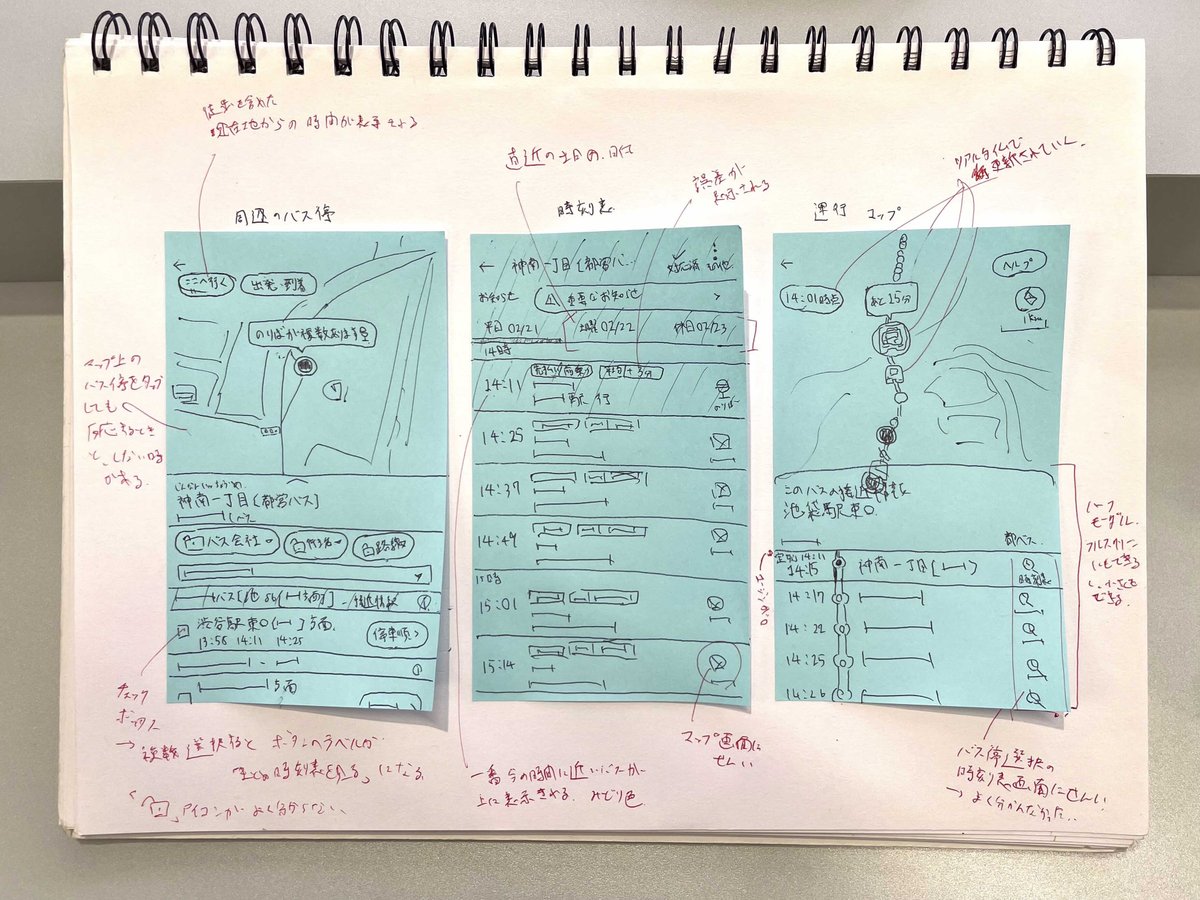 徒歩を含めた
現在地からの時間が表示される
周辺のバス停
←
ここへ行く
出発・到着
のりばが複数あります
マップ上の
バス停をタップ
しても
反応するとき
と、しない時
がある。
神南一丁目[都営バス]
バス会社
行き先
路線
接近情報
渋谷駅東口
13:58 14:11 14:25
停車順 >
チェック
ボックス
→ 複数選択すると ボタンのラベルが
「まとめ時刻表を見る」になる
アイコンがよく分からない
直近の土日の日付
誤差が
表示される
時刻表
←
神南一丁目[都営バ…
対応済
その他
お知らせ
重要なお知らせ
>
平日 02/21
土曜 02/22
休日 02/23
14時
14:11
駅行
14:25
14:37
14:49
15時
15:01
15:14
一番今の時間に近いバスが
上に表示される みどり色
マップ画面に
せんい
リアルタイムで
更新されていく
運行 マップ
←
14:01時点
あと15分
ヘルプ
1km
このバスの接近情報
池袋駅東口
都バス
定刻 14:11
14:15
神南一丁目
時刻表
14:17
14:22
14:25
14:26
ハーフ
モーダル
フルスクリーン
にもできる
し、小さくも
できる。
バス停選択の
時刻表画面にせんい
→ よく分かんなかった…